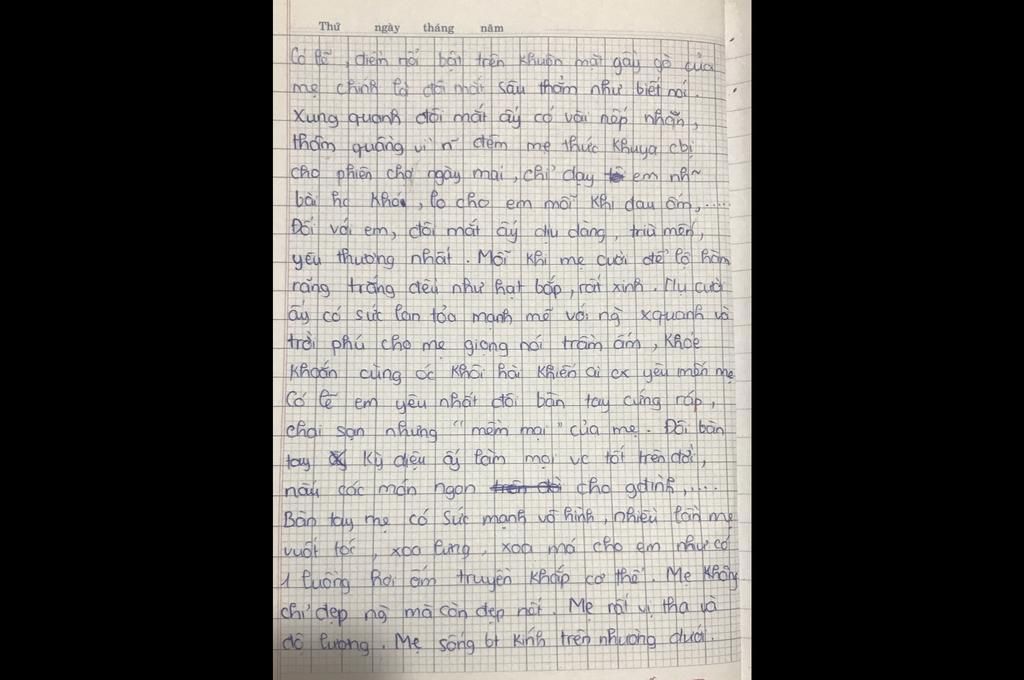 Thứ ngày tháng năm
Có lẽ, điểm nổi bật trên khuôn mặt gầy gò của
mẹ chính là đôi mắt sâu thẳm như biết nói.
Xung quanh đôi mắt ấy có vài nếp nhăn,
thâm quầng vì n~ đêm mẹ thức khuya cbị
cho phiên chợ ngày mai, chỉ dạy em nh~
bài họ khó, lo cho em mỗi khi đau ốm,.....
Đối với em, đôi mắt ấy dịu dàng, trìu mến,
yêu thương nhất. Mỗi khi mẹ cười để lộ hàm
răng trắng đều như hạt bắp, rất xinh. Nụ cười
ấy có sức lan tỏa mạnh mẽ với ng` xquanh và
trời phú cho mẹ giọng nói trầm ấm, khỏe
khoắn cùng óc khôi hài khiến ai cx yêu mến mẹ
Có lẽ em yêu nhất đôi bàn tay cứng ráp,
chai sạn nhưng "mềm mại" của mẹ. Đôi bàn
tay kỳ diệu ấy làm mọi vc tốt trên đời,
nấu các món ngon cho gđình,.....
Bàn tay mẹ có sức mạnh vô hình, nhiều lần mẹ
vuốt tóc, xoa lưng, xoa má cho em như có
1 luồng hơi ấm truyền khắp cơ thể. Mẹ không
chỉ đẹp ng` mà còn đẹp nết. Mẹ rất vị tha và
độ lượng. Mẹ sống bt kính trên nhường dưới.